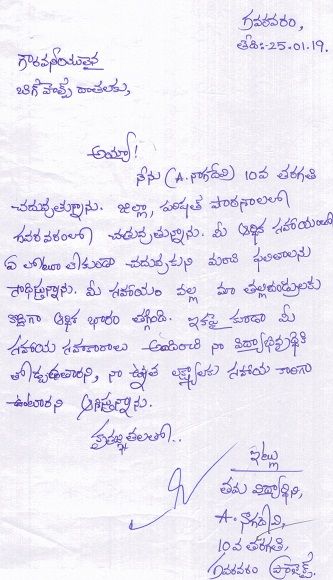 గవరవరం,
తేది:-25.01.19.
గౌరవనీయులైన
బిగ్ హెల్ప్ దాతలకు,
అయ్యా!
నేను (A.నాగదేవి) 10వ తరగతి
చదువుతున్నాను. జిల్లా, పరిషత్ పాఠశాలలో
గవరవరంలో చదువుతున్నాను. మీ ఆర్థిక సహాయంతో
ఏ లోటూ లేకుండా చదువుకుని మంచి ఫలితాలను
సాధిస్తున్నాను. మీ సహాయం వల్ల మా తల్లిదండ్రులకు
కొద్దిగా ఆర్థిక భారం తగ్గింది. ఇకపై కూడా మీ
సహాయ సహకారాలు అందించి నా విద్యాభివృద్ధికి
తోడ్పడతారని, నా ఉన్నత లక్ష్యాలకు సహాయ కారిగా
ఉంటారని ఆశిస్తున్నాను.
కృతజ్ఞతలతో..
ఇట్లు
తమ విద్యార్థిని,
A. నాగదేవి,
10వ తరగతి,
గవరవరం ప్రాజెక్ట్.